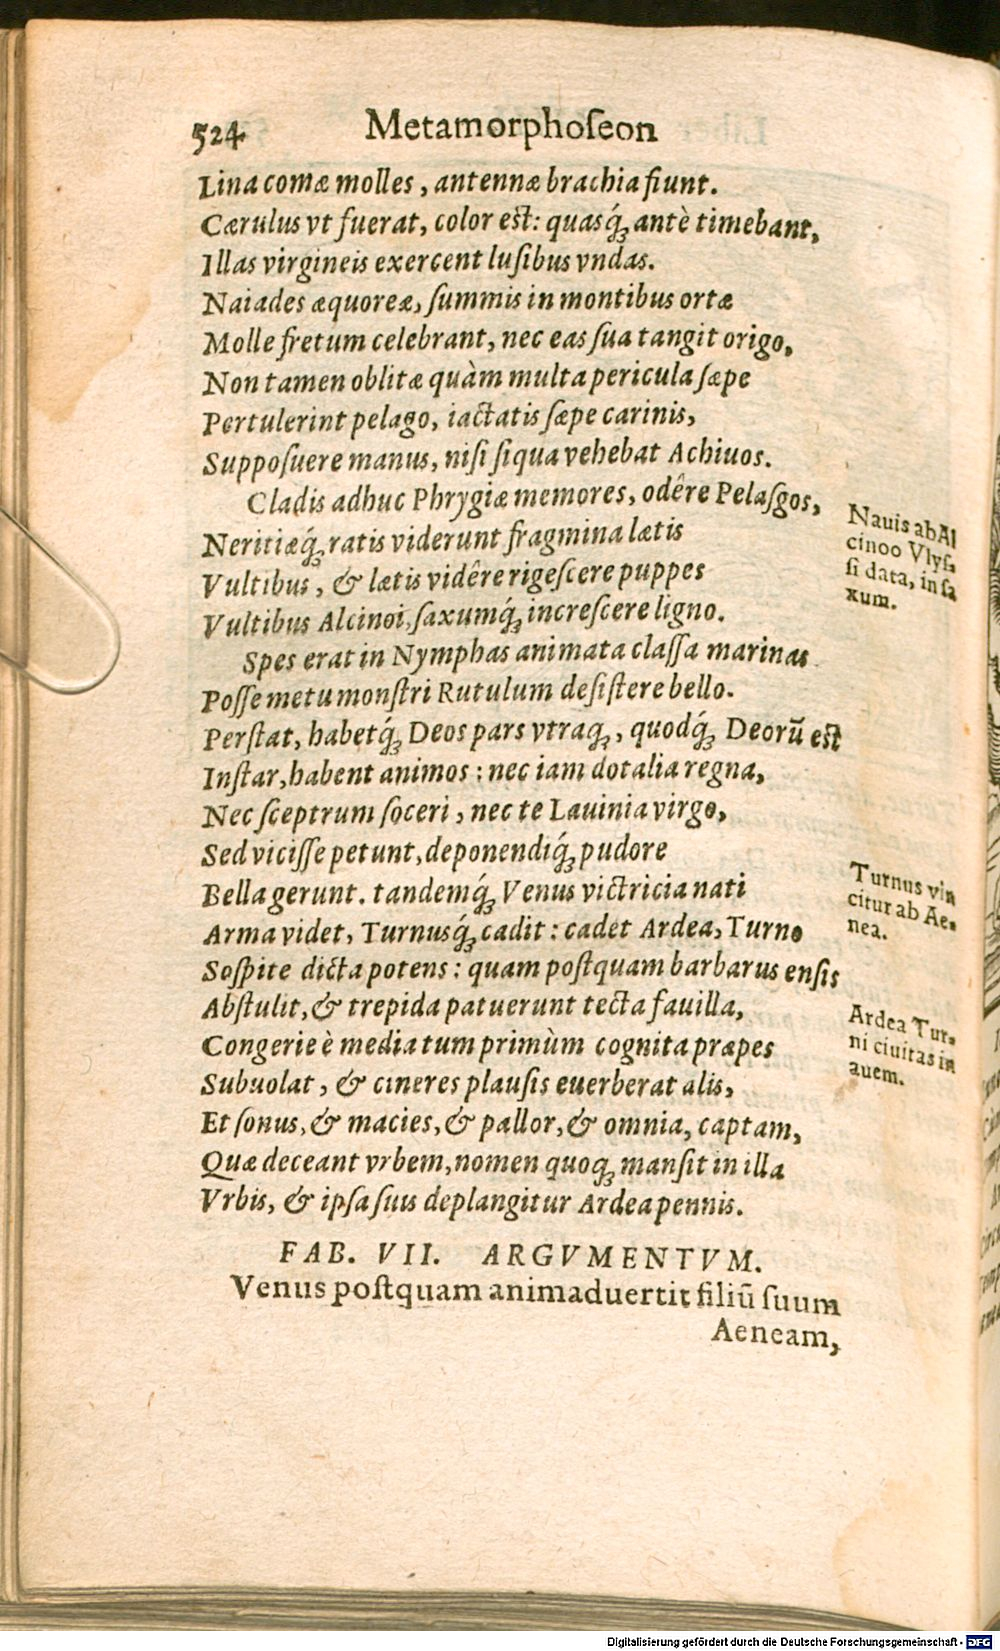 524 Metamorphoſeon
Lina comæ molles, antennæ brachia fiunt.
Cærulus vt fuerat, color eſt: quasq́ꝫ antè timebant,
Illas virgineis exercent luſibus vndas.
Naiades æquoreæ, ſummis in montibus ortæ
Molle fretum celebrant, nec eas ſua tangit origo,
Non tamen oblitæ quàm multa pericula ſæpe
Pertulerint pelago, iactatis ſæpe carinis,
Suppoſuere manus, niſi ſiqua vehebat Achiuos.
Cladis adhuc Phrygiæ memores, odêre Pelaſgos,
Neritiæq́ꝫ ratis viderunt fragmina lætis
Vultibus, & lætis vidêre rigeſcere puppes
Vultibus Alcinoi, ſaxumq́ꝫ increſcere ligno.
Spes erat in Nymphas animata claſſa marinas
Poſſe metu monſtri Rutulum deſiſtere bello.
Perſtat, habetq́ꝫ Deos pars vtraqꝫ, quodq́ꝫ Deorū eſt
Inſtar, habent animos: nec iam dotalia regna,
Nec ſceptrum ſoceri, nec te Lauinia virgo,
Sed viciſſe petunt, deponendiq́ꝫ pudore
Bella gerunt. tandemq́ꝫ Venus victricia nati
Arma videt, Turnusq́ꝫ cadit: cadet Ardea, Turno
Soſpite dicta potens: quam poſtquam barbarus enſis
Abſtulit, & trepida patuerunt tecta fauilla,
Congerie è media tum primùm cognita præpes
Subuolat, & cineres plauſis euerberat alis,
Et ſonus, & macies, & pallor, & omnia, captam,
Quæ deceant vrbem, nomen quoqꝫ manſit in illa
Vrbis, & ipſa ſuis deplangitur Ardea pennis.
FAB. VII. ARGVMENTVM.
Venus poſtquam animaduertit filiū ſuum
Aeneam,
Nauis ab Al
cinoo Vlyſ-
ſi data, in ſa
xum.
Turnus vin
citur ab Ae-
nea.
Ardea Tur-
ni ciuitas in
auem.
Digitalisierung gefördert durch die Deutsche Forschungsgemeinschaft - DFG